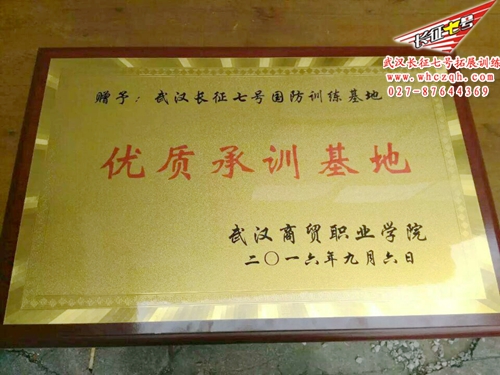 长征七号
武汉长征七号拓展训练
www.whczqh.com
027-87644369
赠予：武汉长征七号国防训练基地
优质承训基地
武汉商贸职业学院
二〇一六年九月六日